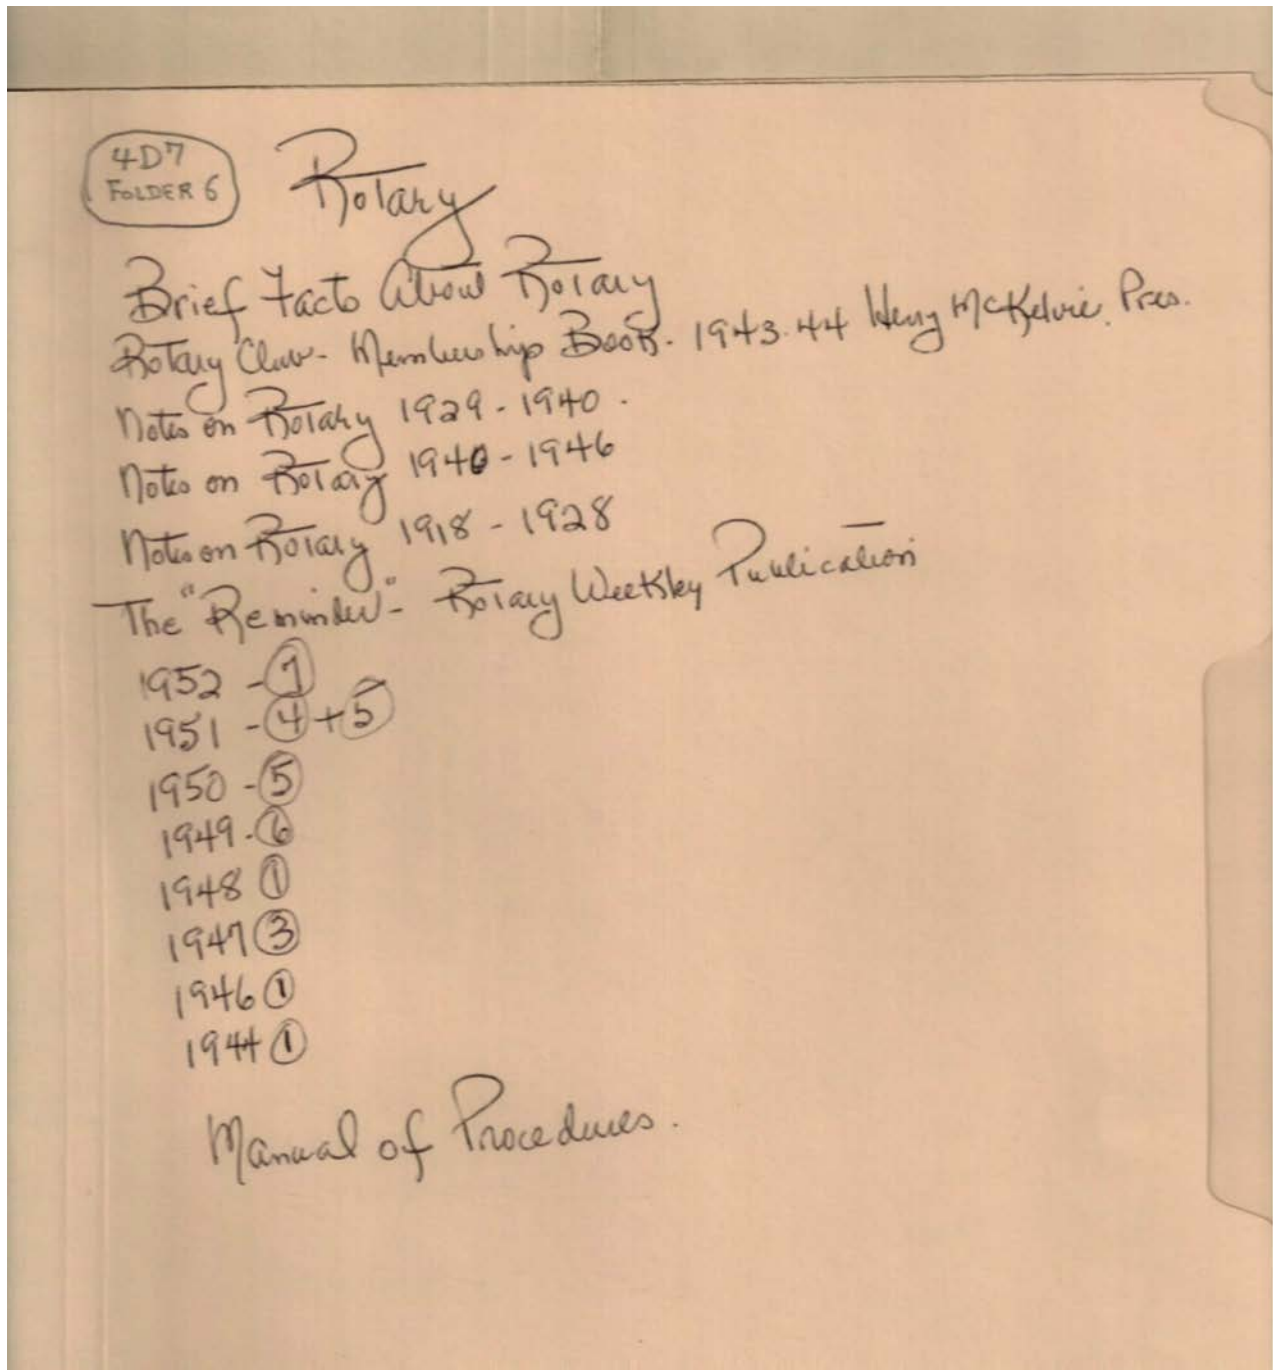 4D7
FOLDER 6
Rotary
Brief Facts About Rotary
Rotary Club - Membership Book - 1943-44 Henry McKelvie, Pres.
Notes on Rotary 1929 - 1940.
Notes on Rotary 1940 - 1946
Notes on Rotary 1918 - 1928
The "Reminder" - Rotary Weekley Publication
1952 - 7
1951 - 4 + 5
1950 - 5
1949 - 6
1948 1
1947 3
1946 1
1944 1
Manual of Procedures.